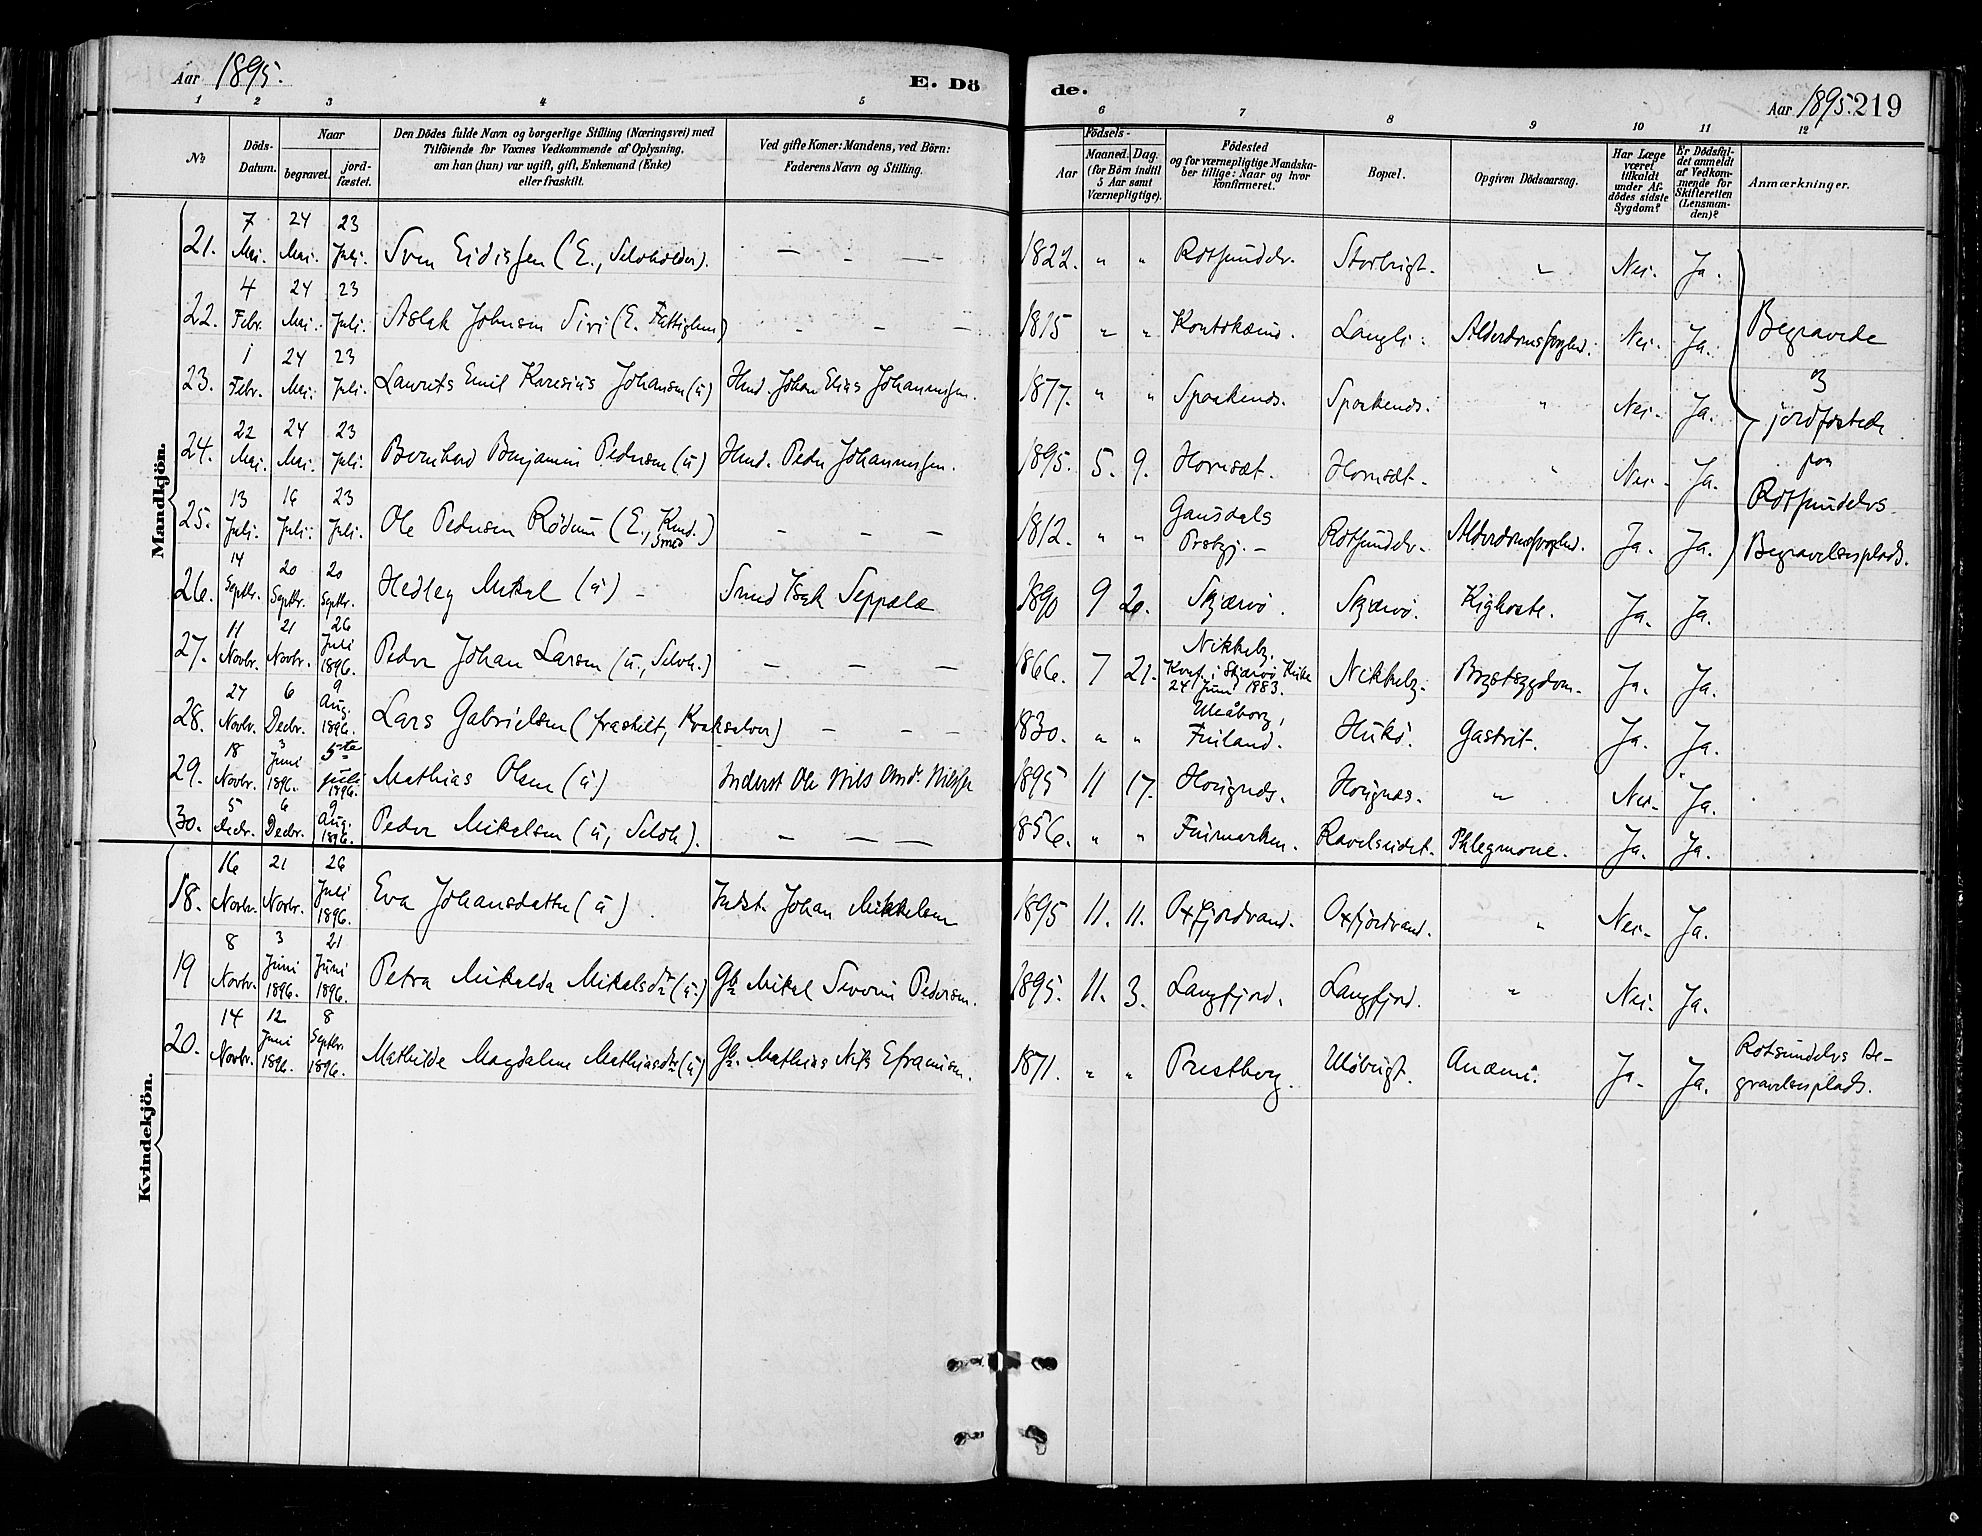 Aar 1895.
E. Dö
de.
Aar 1895. 219
1 2 3 4 5 6 7 8 9 10 11 12
No
Döds-Datum.
Naar
begravet.
jord-fæstet.
Den Dödes fulde Navn og borgerlige Stilling (Næringsvei) med
Tilföiende for Voxnes Vedkommende af Oplysning,
om han (han) var ugift, gift, Enkemand (Enke)
eller fraskilt.
Ved gifte Koner: Mandens, ved Börn:
Faderens Navn og Stilling.
Födsels-
Aar
Maaned. Dag.
(for Börn indtil
5 Aar samt
Værnepligtige).
Födested
og for værnepligtige Mandska-
ber tillige: Naar og hvor
konfirmeret.
Bopæl.
Opgiven Dödsaarsag.
Har Læge
været
tilkaldt
under Af-
dödes sidste
Sygdom?
Er Dödsfal-
det anmeldt
af Vedkom-
mende for
Skifteretten
(Lensman-
den)?
Anmærkninger.
Mandkjön.
21. 7 Mai. 24 Mai. 23 Juli. Sven Eidissen (E., Selvholder). — - — 1822. " " Rotsundelv. Storbugt. " Nei. Ja.
22. 4 Febr. 24 Mai. 23 Juli. Aslak Johnsen Siri (E. Fattiglem) - — — 1815 " " Kontokæino. Langli. Alderdomssvaghed. Nei. Ja.
23. 1 Febr. 24 Mai. 23 Juli. Laurits Emil Karesius Johansen (u) Hmd. Johan Elias Johannessen. 1877. " " Sparkenes. Sparkenes. " Nei. Ja.
24. 22 Mai. 24 Mai. 23 Juli. Bernhard Benjamin Pedersen (u) Hmd. Peder Johannessen. 1895. 5. 9. Hovisæt. Hovisæt. " Nei. Ja.
25. 13 Juli. 16 Juli. 23 Juli. Ole Pedersen Rödum (E., Kmd. Smed) — — — 1812. " " Gausdals Prstgj. — Rotsundelv. Alderdomssvaghed. Ja. Ja.
Begravede
&
jordfæstede
paa
Rotsundelvs
Begravelsesplads.
26. 14 Septbr. 20 Septbr. 20 Septbr. Hedley Mikal (u) - Smed Isak Seppälä 1890 9 20. Skjærvö. Skjærvö. Kighoste. Ja. Ja.
27. 11 Novbr. 21 Novbr. 26 Juli 1896. Peder Johan Larsen (u., Selvh.) — — — 1866. 7 21. Nikkelg. Konf. i Skjærvö Kirke 24 Juni 1883. Nikkelg. Brystsygdom. Ja. Ja.
28. 27 Novbr. 6 Decbr. 9 Aug. 1896. Lars Gabrielsen (fraskilt, Kvaksalver) — - — 1830. " " Uleåborg, Finland. Hukö. Gastrit. Ja. Ja.
29. 18 Novbr. 3 Juni 1896. 5te juli 1896. Mathias Olsen (u) Inderst Ole Nils And. Nilssen 1895 11 17. Höugnæs. Höugnæs. " Nei. Ja.
30. 5 Decbr. 6 Decbr. 9 Aug. 1896. Peder Mikalsen (u, Selvh). — — — 1856. " " Finmarken. Ravelseidet. Phlegmone. Ja. Ja.
Kvindekjön.
18. 16 Novbr. 21 Novbr. 26 Juli 1896. Eva Johansdatter (u) Indst. Johan Mikkelsen 1895 11. 11. Oxfjordvand. Oxfjordvand. " Nei. Ja.
19 8 Novbr. 3 Juni 1896. 21 Juni 1896. Petra Mikalda Mikalsdtr (u.) Gb. Mikal Severin Pedersen. 1895. 11. 3. Langfjord. Langfjord. " Nei. Ja.
20. 14 Novbr. 12 Juni 1896. 8 Septbr. 1896. Mathilde Magdalene Mathiasdtr (u) Gb. Mathias Nils Efraimsen. 1871. " " Prestberg. Ulöbugt. Anæmi. Ja. Ja. Rotsundelvs Be-
gravelsesplads.